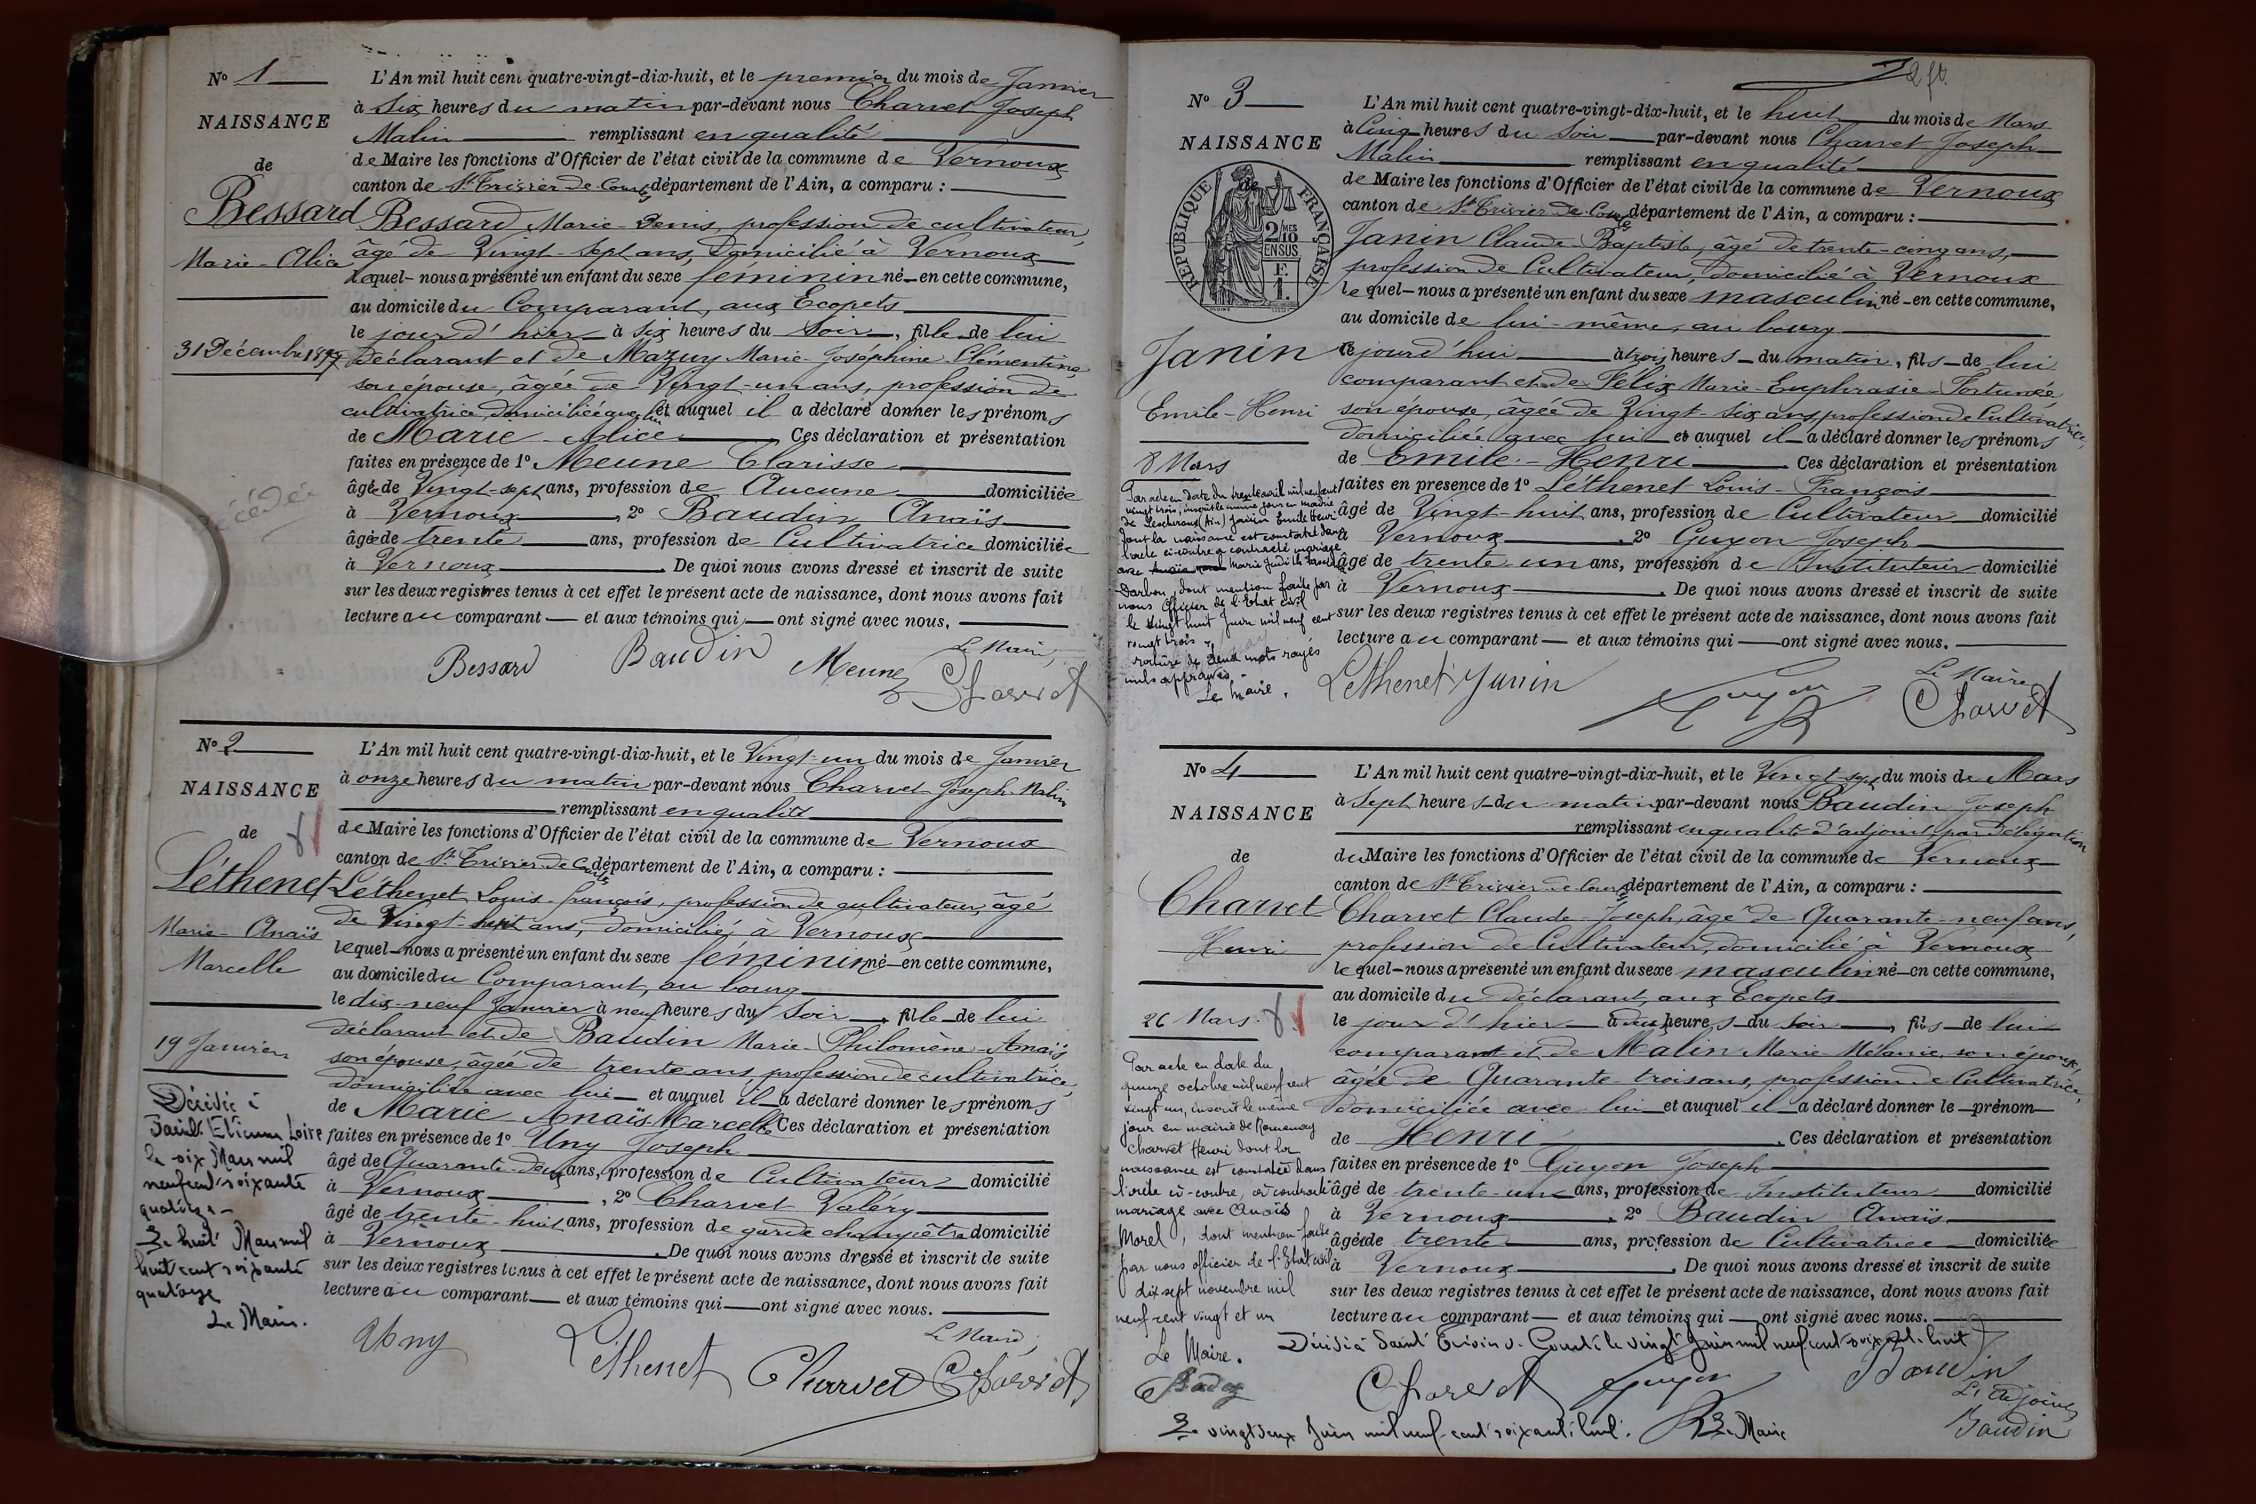 N° 1
NAISSANCE
de
Bessard
Marie-Alice
31 Décembre 1897
L'An mil huit cent quatre-vingt-dix-huit, et le premier du mois de Janvier
à six heures du matin par-devant nous Charvet Joseph
Malin remplissant en qualité
de Maire les fonctions d'Officier de l'état civil de la commune de Vernoux
canton de St Trivier de Courtes département de l'Ain, a comparu :
Bessard Marie-Denis, profession de cultivateur,
âgé de Vingt-sept ans, domicilié à Vernoux
lequel nous a présenté un enfant du sexe féminin né en cette commune,
au domicile du Comparant, aux Ecopets
le jour d'hier à six heures du soir, fille de lui
déclarant et de Mazuy Marie-Joséphine Clémentine
son épouse, âgée de Vingt-un ans, profession de
cultivatrice, domiciliée avec lui et auquel il a déclaré donner les prénoms
de Marie-Alice Ces déclaration et présentation
faites en présence de 1° Meune Clarisse
âgée de Vingt-sept ans, profession de Aucune domiciliée
à Vernoux, 2° Baudin Anaïs
âgée de trente ans, profession de Cultivatrice domiciliée
à Vernoux. De quoi nous avons dressé et inscrit de suite
sur les deux registres tenus à cet effet le présent acte de naissance, dont nous avons fait
lecture au comparant et aux témoins qui ont signé avec nous.
Bessard Baudin Meune Le Maire,
Charvet
N° 2
NAISSANCE
de
Léthenet
Marie-Anaïs
Marcelle
19 Janvier
Décédée à
Saint Etienne Loire
le six Mars mil
neuf cent soixante
quatorze
Le huit Mars mil
huit cent soixante
quatorze
Le Maire.
L'An mil huit cent quatre-vingt-dix-huit, et le Vingt-un du mois de Janvier
à onze heures du matin par-devant nous Charvet Joseph Malin
remplissant en qualité
de Maire les fonctions d'Officier de l'état civil de la commune de Vernoux
canton de St Trivier de Courtes département de l'Ain, a comparu :
Léthenet Louis-François, profession de cultivateur, âgé
de Vingt-huit ans, domicilié à Vernoux
lequel nous a présenté un enfant du sexe féminin né en cette commune,
au domicile du Comparant, au bourg
le dix-neuf Janvier à neuf heures du soir, fille de lui
déclarant et de Baudin Marie-Philomène-Anaïs
son épouse, âgée de trente ans, profession de cultivatrice,
domiciliée avec lui et auquel il a déclaré donner les prénoms
de Marie Anaïs Marcelle Ces déclaration et présentation
faites en présence de 1° Uny Joseph
âgé de Quarante-deux ans, profession de Cultivateur domicilié
à Vernoux, 2° Charvet Valéry
âgé de trente-huit ans, profession de garde champêtre domicilié
à Vernoux. De quoi nous avons dressé et inscrit de suite
sur les deux registres tenus à cet effet le présent acte de naissance, dont nous avons fait
lecture au comparant et aux témoins qui ont signé avec nous.
Uny Léthenet Charvet Le Maire,
Charvet
N° 3
NAISSANCE
de
RÉPUBLIQUE FRANÇAISE
2/10 MES
EN SUS
Janin
Emile-Henri
8 Mars
Par acte en date du trente avril mil neuf cent
vingt trois, inscrit le même jour en mairie
de Lescheroux (Ain) Janin Emile Henri
dont la naissance est constatée dans
l'acte ci-contre a contracté mariage
avec Marie Judith
Darbon, dont mention faite par
nous Officier de l'Etat civil
le vingt huit Juin mil neuf cent
vingt trois.
rature de deux mots rayés
nuls approuvés.
Le Maire.
L'An mil huit cent quatre-vingt-dix-huit, et le huit du mois de Mars
à Cinq heures du soir par-devant nous Charvet Joseph
Malin remplissant en qualité
de Maire les fonctions d'Officier de l'état civil de la commune de Vernoux
canton de St Trivier de Courtes département de l'Ain, a comparu :
Janin Claude-Baptiste, âgé de trente-cinq ans,
profession de Cultivateur, domicilié à Vernoux
lequel nous a présenté un enfant du sexe masculin né en cette commune,
au domicile de lui-même, au bourg
ce jourd'hui à trois heures du matin, fils de lui
comparant et de Félix Marie-Euphrasie-Fortunée
son épouse, âgée de Vingt-six ans, profession de Cultivatrice,
domiciliée avec lui et auquel il a déclaré donner les prénoms
de Emile-Henri Ces déclaration et présentation
faites en présence de 1° Léthenet Louis-François
âgé de Vingt-huit ans, profession de Cultivateur domicilié
à Vernoux, 2° Guyon Joseph
âgé de trente-un ans, profession de Instituteur domicilié
à Vernoux. De quoi nous avons dressé et inscrit de suite
sur les deux registres tenus à cet effet le présent acte de naissance, dont nous avons fait
lecture au comparant et aux témoins qui ont signé avec nous.
Lethenet Janin Guyon Le Maire
Charvet
N° 4
NAISSANCE
de
Charvet
Henri
26 Mars.
Par acte en date du
quinze octobre mil neuf cent
vingt un, inscrit le même
jour en mairie de Romenay
Charvet Henri dont la
naissance est constatée dans
l'acte ci-contre, a contracté
mariage avec Anaïs
Morel, dont mention faite
par nous officier de l'Etat civil
dix sept novembre mil
neuf cent vingt et un
Le Maire.
L'An mil huit cent quatre-vingt-dix-huit, et le Vingt-sept du mois de Mars
à Sept heures du matin par-devant nous Baudin Joseph
remplissant en qualité d'adjoint par délégation
du Maire les fonctions d'Officier de l'état civil de la commune de Vernoux
canton de St Trivier de Courtes département de l'Ain, a comparu :
Charvet Claude-Joseph, âgé de Quarante-neuf ans,
profession de Cultivateur, domicilié à Vernoux
lequel nous a présenté un enfant du sexe masculin né en cette commune,
au domicile du déclarant, aux Ecopets
le jour d'hier à deux heures du soir, fils de lui
comparant et de Malin Marie-Mélanie, son épouse,
âgée de Quarante-trois ans, profession de Cultivatrice,
domiciliée avec lui et auquel il a déclaré donner le prénom
de Henri. Ces déclaration et présentation
faites en présence de 1° Guyon Joseph
âgé de trente-un ans, profession de Instituteur domicilié
à Vernoux, 2° Baudin Anaïs
âgée de trente ans, profession de Cultivatrice domiciliée
à Vernoux. De quoi nous avons dressé et inscrit de suite
sur les deux registres tenus à cet effet le présent acte de naissance, dont nous avons fait
lecture au comparant et aux témoins qui ont signé avec nous.
Décédé à Saint Trivier de Courtes le vingt Juin mil neuf cent soixante huit
Charvet Guyon Baudin
L'adjoint
Baudin
Le vingt deux Juin mil neuf cent soixante huit. Le Maire